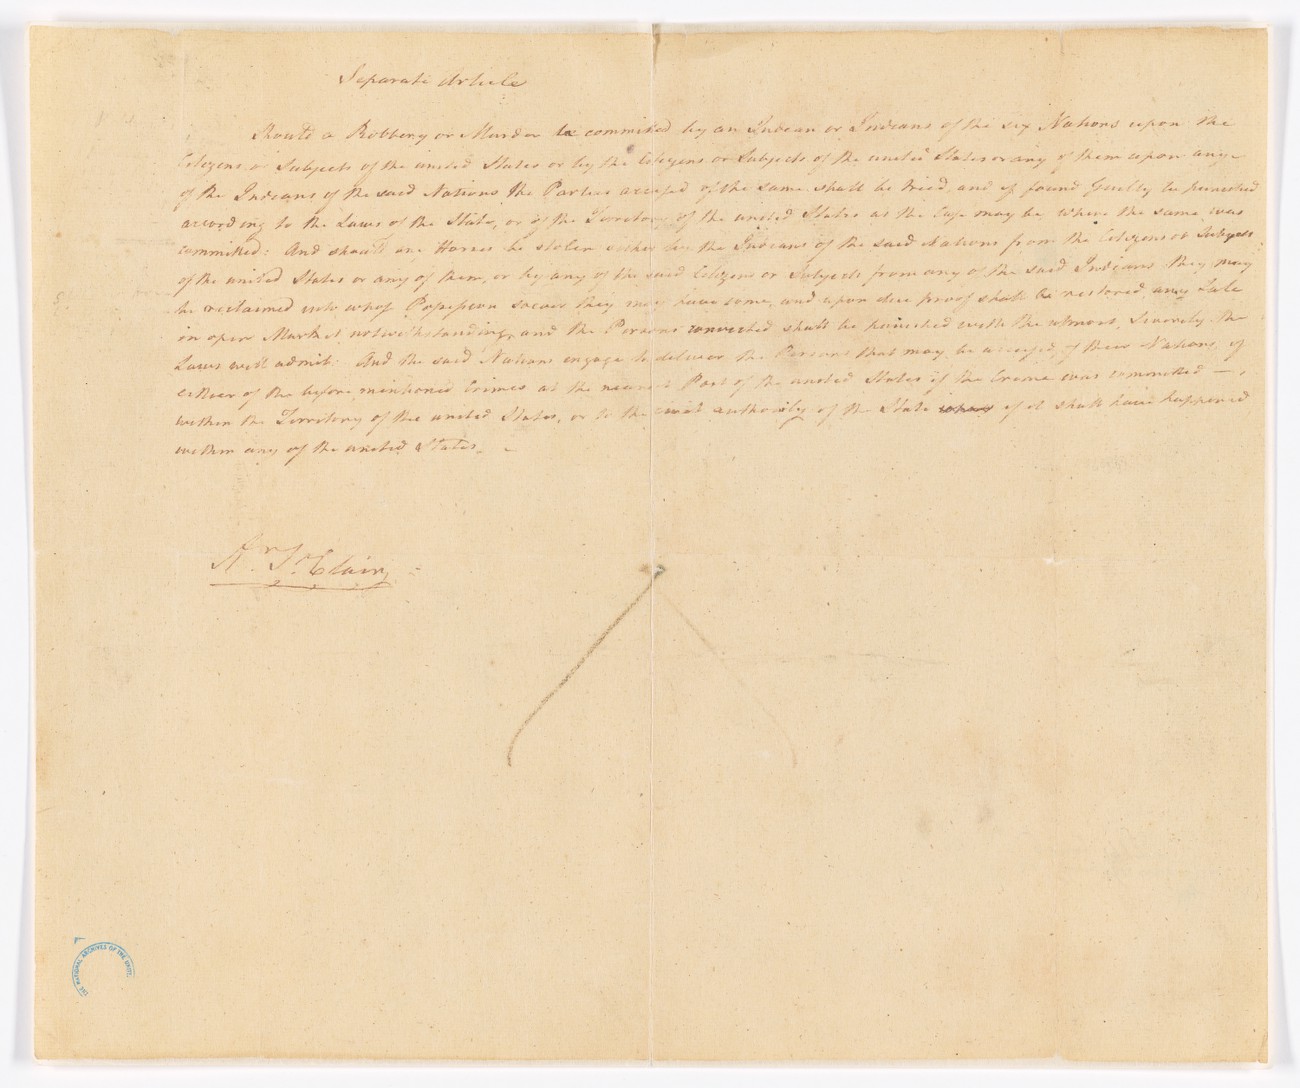 Separate Article
Should a Robbery or Murder be committed by an Indian or Indians of the Six Nations upon the
Citizens or Subjects of the united States or by the Citizens or Subjects of the united States or any of them upon any
of the Indians of the said Nations the Parties accused of the same shall be tried and if found Guilty be punished
according to the Laws of the State, or of the Territory of the united States as the Case may be where the same was
committed: And should any Horses be stolen either by the Indians of the said Nations from the Citizens or Subjects
of the united States or any of them, or by any of the said Citizens or Subjects from any of the said Indians they may
be reclaimed into whose Possession soever they may have come, and upon due proof shall be restored any Sale
in open Market notwithstanding, and the Persons convicted shall be punished with the utmost Severity the
Laws will admit. And the said Nations engage to deliver the Persons that may be accused of their Nations of
either of the before mentioned Crimes at the nearest Post of the united States if the Crime was committed —
within the Territory of the united States, or to the civil authority of the State if it shall have happened
within any of the united States.
Ar. St. Clair
THE NATIONAL ARCHIVES OF THE UNITE